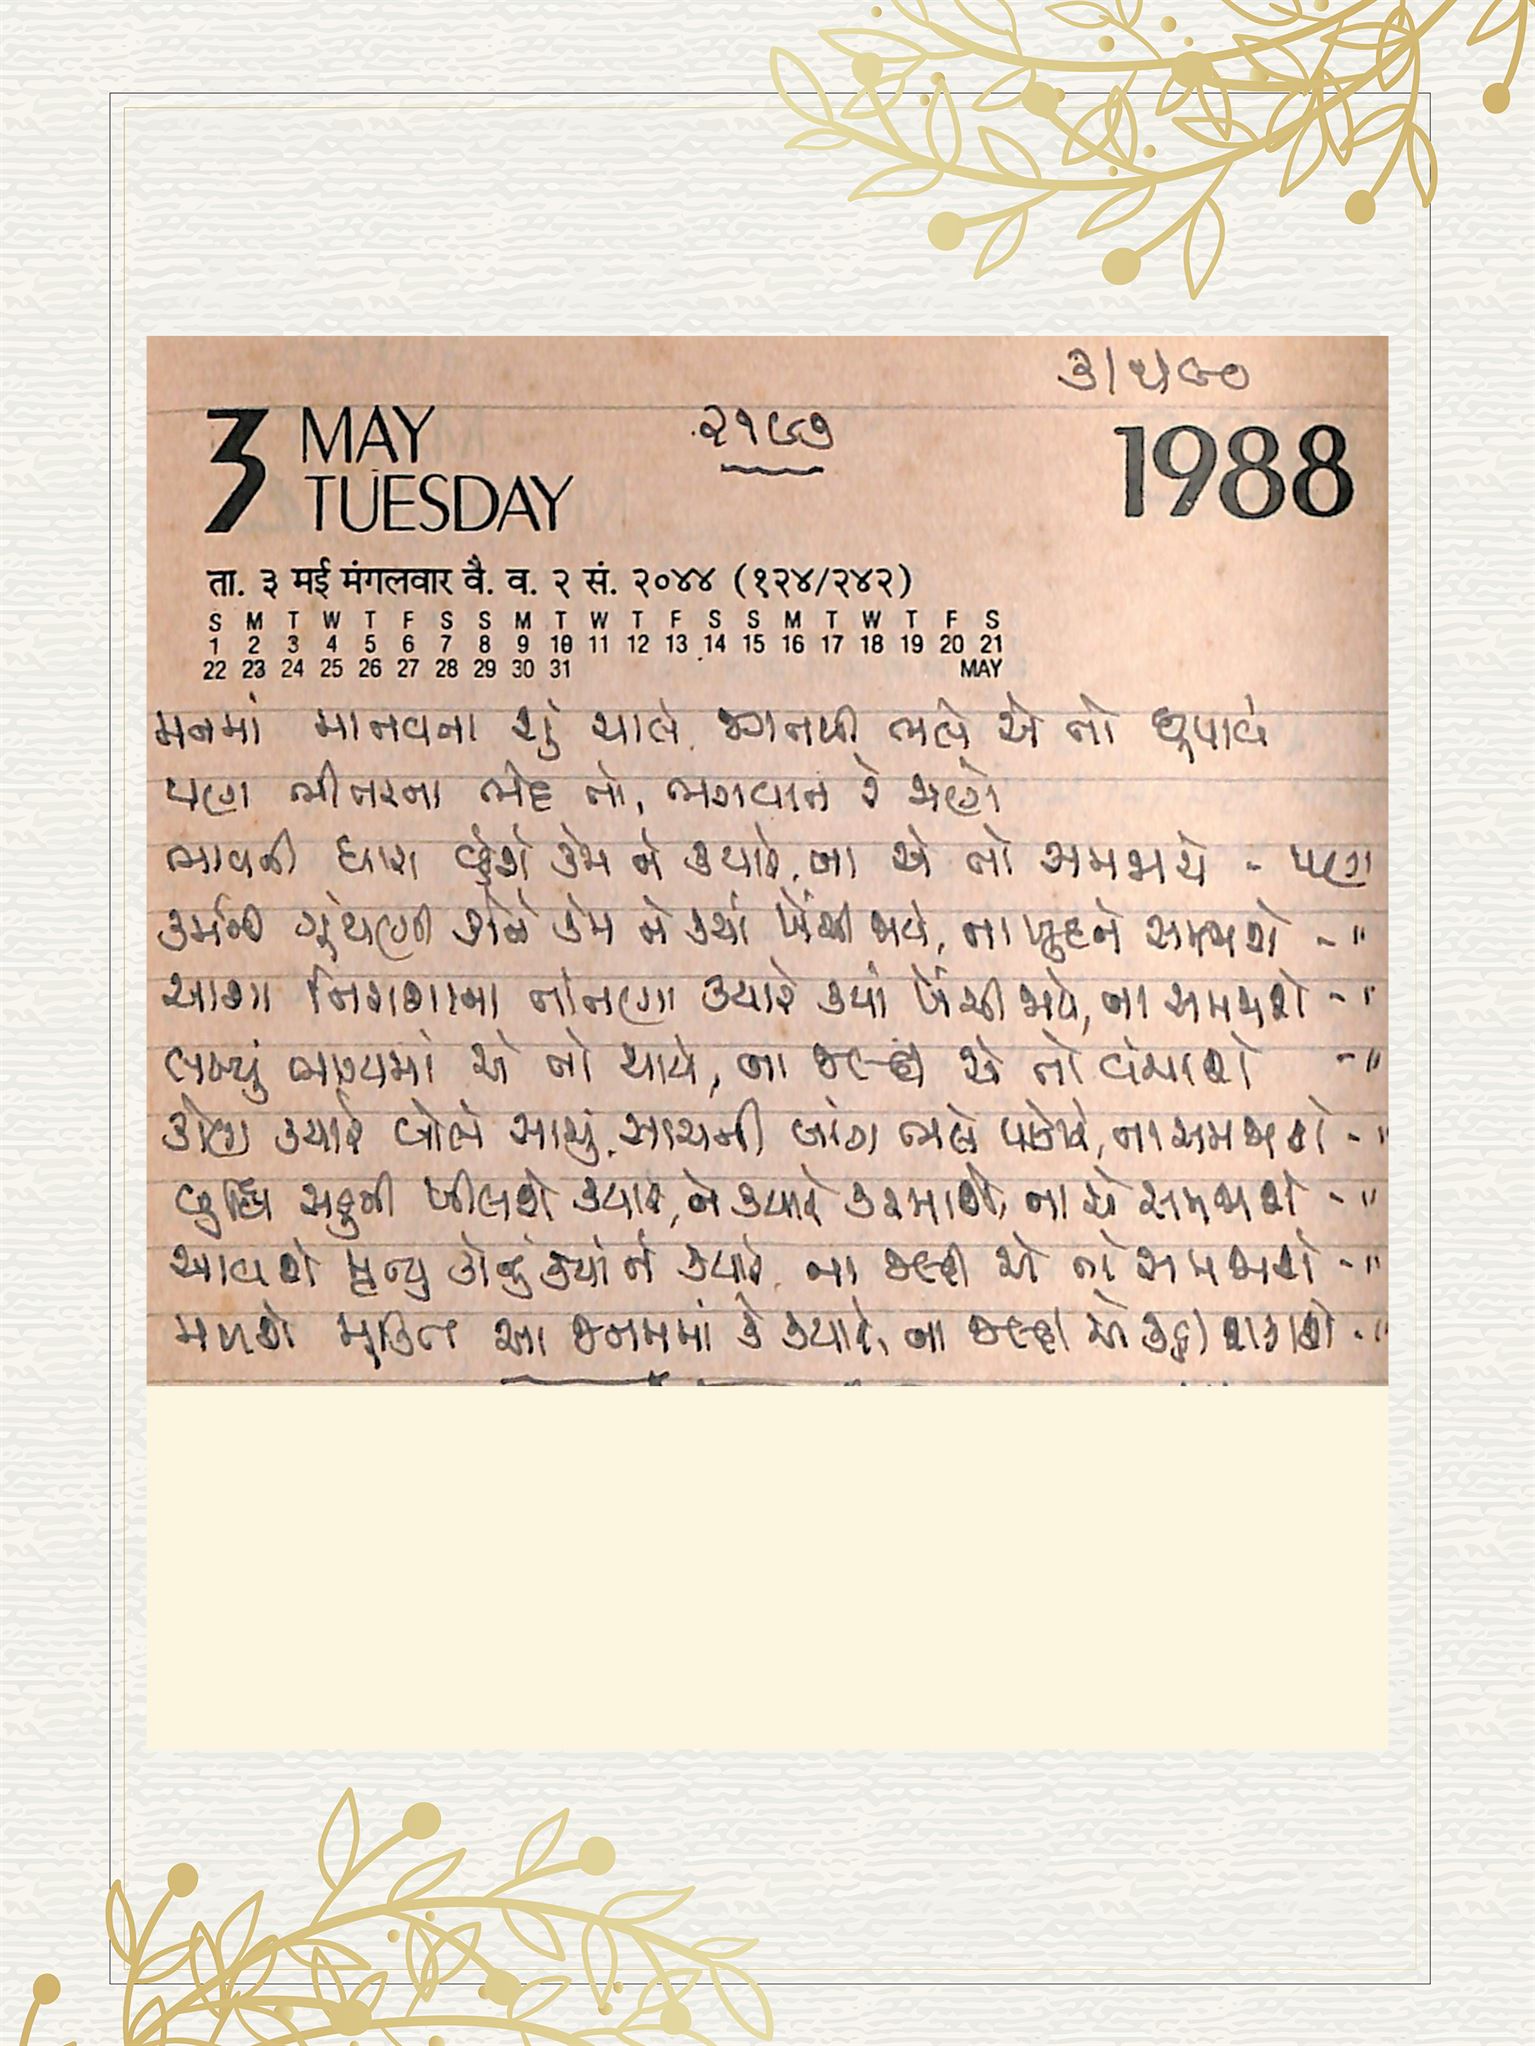 ૩/૫/૯૦
3 MAY
TUESDAY
૨૧૯૭
1988
ता. ३ मई मंगलवार वै. व. २ सं. २०४४ (१२४/२४२)
S M T W T F S S M T W T F S S M T W T F S
1 2 3 4 5 6 7 8 9 10 11 12 13 14 15 16 17 18 19 20 21
22 23 24 25 26 27 28 29 30 31 MAY
મનમાં માનવના શું ચાલે, જગનથી ભલે એ તો છૂપાવે
પણ ભીતરના ભેદ તો, ભગવાન રે જાણે
ભાવની ધારા કેમ ને ક્યારે, ના એ તો સમજાયે - પણ
કર્મની ગૂંથણી કોને કેમ ને ક્યાં ખેંચી જાયે, ના ખુદને સમજાશે - "
આશા નિરાશાના તાંતણા ક્યારે ક્યાં ખેંચી જાયે, ના સમજાશે - "
લખ્યું ભાગ્યમાં એ તો થાયે, ના જલ્દી એ તો વંચાશે - "
કોણ ક્યારે બોલે સાચું, સાચની બાંગ ભલે પોકારે, ના સમજાશે - "
બુદ્ધિ સહુની ખીલશે ક્યારે, ને ક્યારે કરમાશે, ના એ સમજાશે - "
આવશે મૃત્યુ કોનું ક્યાં ને ક્યારે, ના જલ્દી એ તો સમજાશે - "
મળશે મુક્તિ આ જનમમાં કે ક્યારે, ના જલ્દી એ કહી શકાશે - "